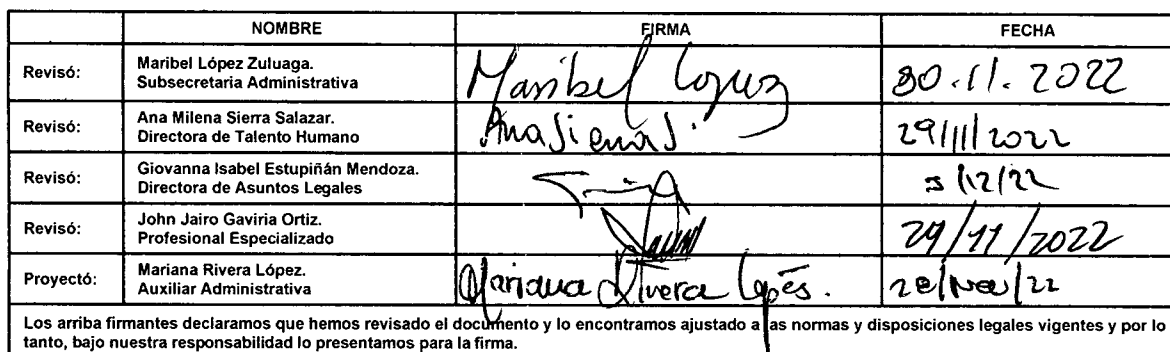 NOMBRE FIRMA FECHA
Revisó: Maribel López Zuluaga. Subsecretaria Administrativa Maribel López 30.11.2022
Revisó: Ana Milena Sierra Salazar. Directora de Talento Humano Ana Sierra S. 29/11/2022
Revisó: Giovanna Isabel Estupiñán Mendoza. Directora de Asuntos Legales /12/22
Revisó: John Jairo Gaviria Ortiz. Profesional Especializado 29/11/2022
Proyectó: Mariana Rivera López. Auxiliar Administrativa Mariana Rivera López. 28/Nov/22
Los arriba firmantes declaramos que hemos revisado el documento y lo encontramos ajustado a las normas y disposiciones legales vigentes y por lo
tanto, bajo nuestra responsabilidad lo presentamos para la firma.